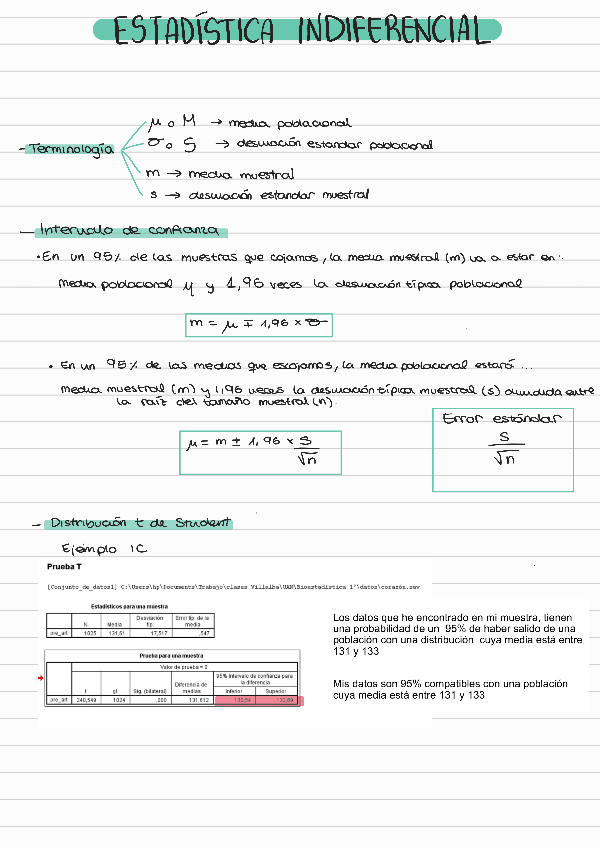 ESTADÍSTICA INDIFERENCIAL
μ o M → media poblacional
- Terminología σ o S → desviación estandar poblacional
m → media muestral
s → desviación estandar muestral
- Intervalo de confianza
• En un 95% de las muestras que cojamos, la media muestral (m) va a estar en:
media poblacional μ y 1,96 veces la desviación típica poblacional
m = μ ∓ 1,96 × σ
• En un 95% de las medias que escojamos, la media poblacional estará ...
media muestral (m) y 1,96 veces la desviación típica muestral (s) dividida entre
la raíz del tamaño muestral (n).
Error estándar
s
√n
μ = m ± 1,96 × s
√n
- Distribución t de Student
Ejemplo IC
Prueba T
[Conjunto_de_datos1] C:\Users\hp\Documents\Trabajo\clases Villalba\UAM\Bioestadística 1º\datos\corazón.sav
Estadísticos para una muestra
N Media Desviación típ. Error típ. de la media
pre_art 1025 131,61 17,512 ,547
Prueba para una muestra
Valor de prueba = 0
95% Intervalo de confianza para la diferencia
t gl Sig. (bilateral) Diferencia de medias Inferior Superior
pre_art 240,549 1024 ,000 131,612
Los datos que he encontrado en mi muestra, tienen
una probabilidad de un 95% de haber salido de una
población con una distribución cuya media está entre
131 y 133
Mis datos son 95% compatibles con una población
cuya media está entre 131 y 133